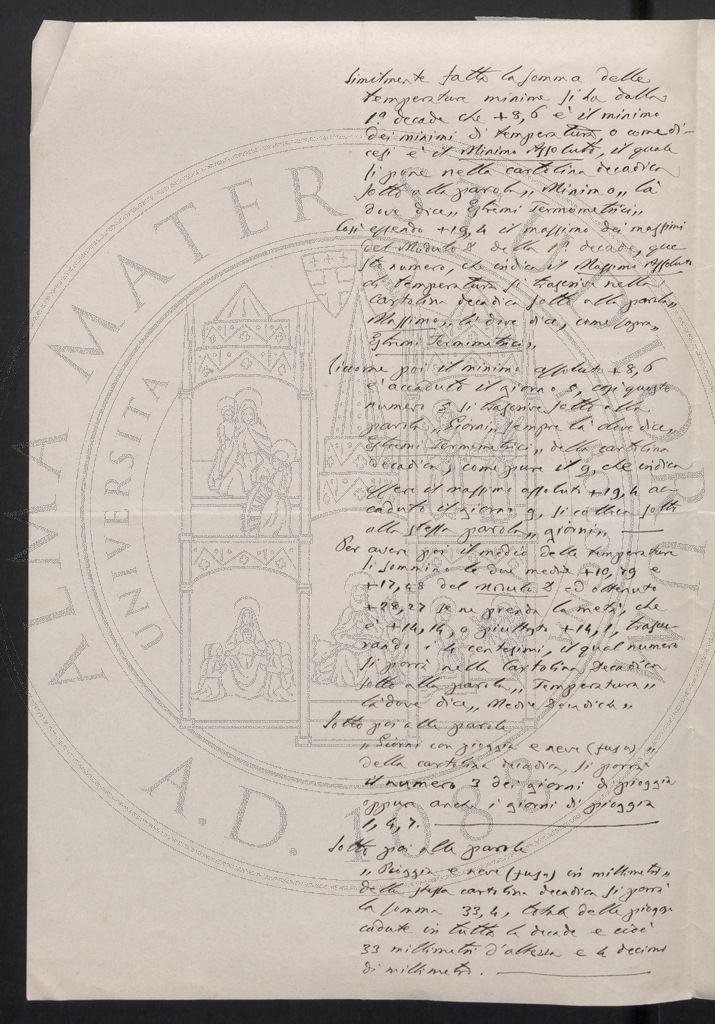 Similmente fatta la somma delle
temperature minime si ha dalla
1ª decade che +8,6 è il minimo
dei minimi di temperatura, o come di-
cesi è il Minimo Assoluto, il quale
si pone nella cartolina decadica
sotto alla parola „Minimo„ là
dove dice „Estremi Termometrici„
Così essendo +19,4 il massimo dei massimi
del Modulo 2 della 1ª decade, que-
sto numero, che indica il Massimo Assoluto
di temperatura si trascrive nella
cartolina decadica sotto alla parola„
Massimo„ là dove dice, come sopra„
Estremi Termometrici„
Siccome poi il minimo assoluto +8,6
è accaduto il giorno 3, così questo
numero 3 si trascrive sotto alla
parola „Giorni„ sempre là dove dice„
Estremi Termometrici„ della cartolina
decadica; come pure il 9, che indica
essere il massimo assoluto +19,4 ac-
caduto il giorno 9, si colloca sotto
alla stessa parola „giorni„
Per avere poi il medio della temperatura
si sommino le due medie +10,79 e
+17,48 del Modulo 2 ed ottenuto
+28,27 se ne prenda la metà, che
è +14,14, o piuttosto +14,1, trascu-
rando i 4 centesimi, il qual numero
si porrà nella Cartolina Decadica
sotto alla parola „Temperatura„
là dove dice„ Media Decadica„
Sotto poi alla parola
„Giorni con pioggia e neve (fusa)„
della cartolina decadica, si porrà
il numero 3 dei giorni di pioggia
oppure anche i giorni di pioggia
1, 4, 7.
Sotto poi alla parola
„Pioggia e neve (fusa) in millimetri„
della stessa cartolina decadica si porrà
la somma 33,4, totale delle piogge
cadute in tutta la decade e cioè
33 millimetri d'altezza e 4 decimi
di millimetro.
ALMA MATER STUDIORUM
UNIVERSITÀ
A.D. 1088